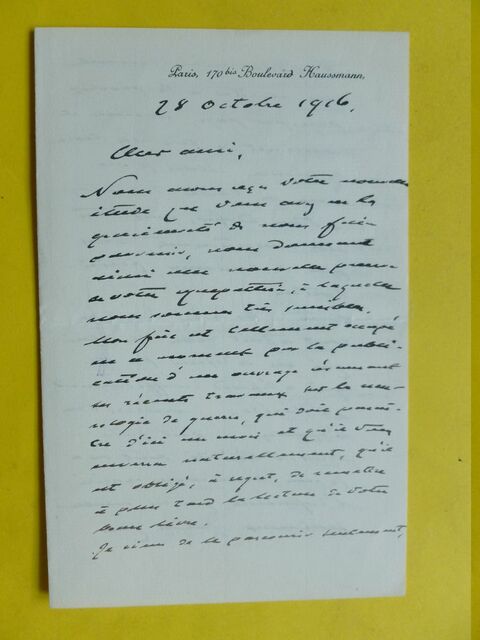 Paris, 170 bis Boulevard Haussmann,
28 octobre 1916.
Cher ami,
Nous avons reçu votre nouvelle
étude que vous avez eu la
gracieuseté de nous faire
parvenir, nous donnant
ainsi une nouvelle preuve
de votre sympathie, à laquelle
nous sommes très sensibles.
Mon fils est tellement occupé
en ce moment par la publi-
cation d'un ouvrage résumant
ses récents travaux sur la neu-
rologie de guerre, qui doit paraî-
tre d'ici un mois et qu'il vous
enverra naturellement, qu'il
est obligé, à regret, de remettre
à plus tard la lecture de votre
beau livre.
Je viens de le parcourir seulement,